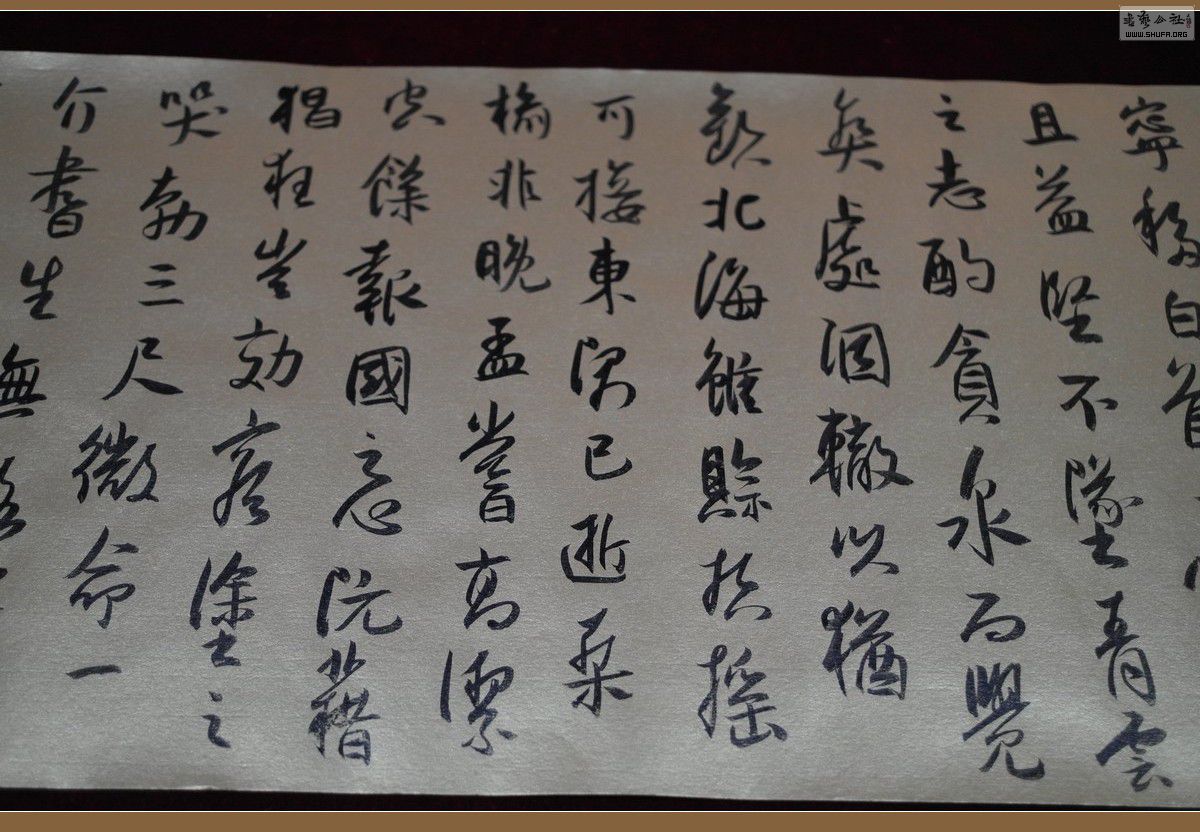 寧移白首
且益堅不墜青雲
之志酌貪泉而覺
爽處涸轍以猶
歡北海雖賒扶搖
可接東隅已逝桑
榆非晚孟嘗高潔
空餘報國之心阮藉
猖狂豈効窮塗之
哭勃三尺微命一
介書生無
書藝公社
WWW.SHUFA.ORG